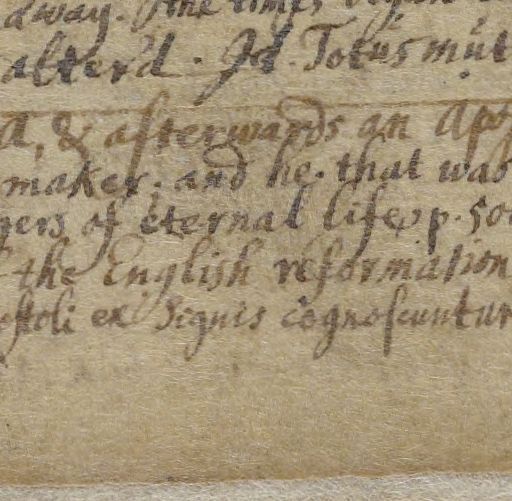 dway. the times began
alter'd. Id. Totus mut
a, & afterwards an Apo
maker; and he. that was
gers of eternal life, p. 50
the English reformation
ostoli ex Signis cognoscuntur